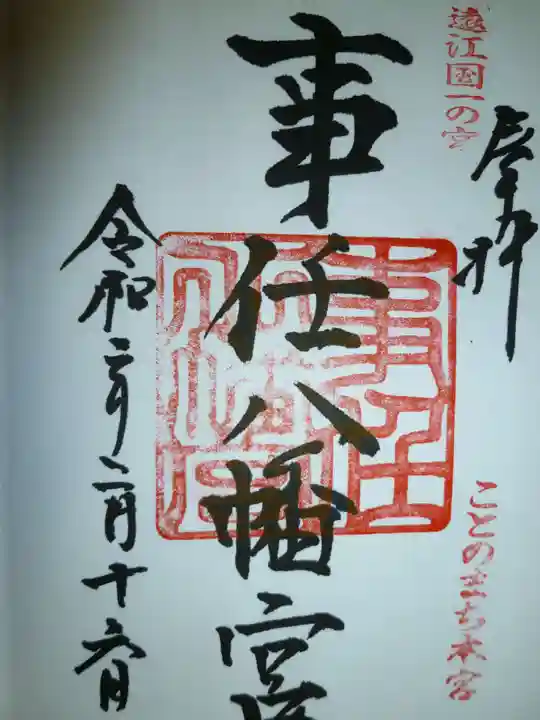 遠江国一の宮
奉拝
ことのまち本宮
事任八幡宮
事任八幡宮
令和二年二月十六日